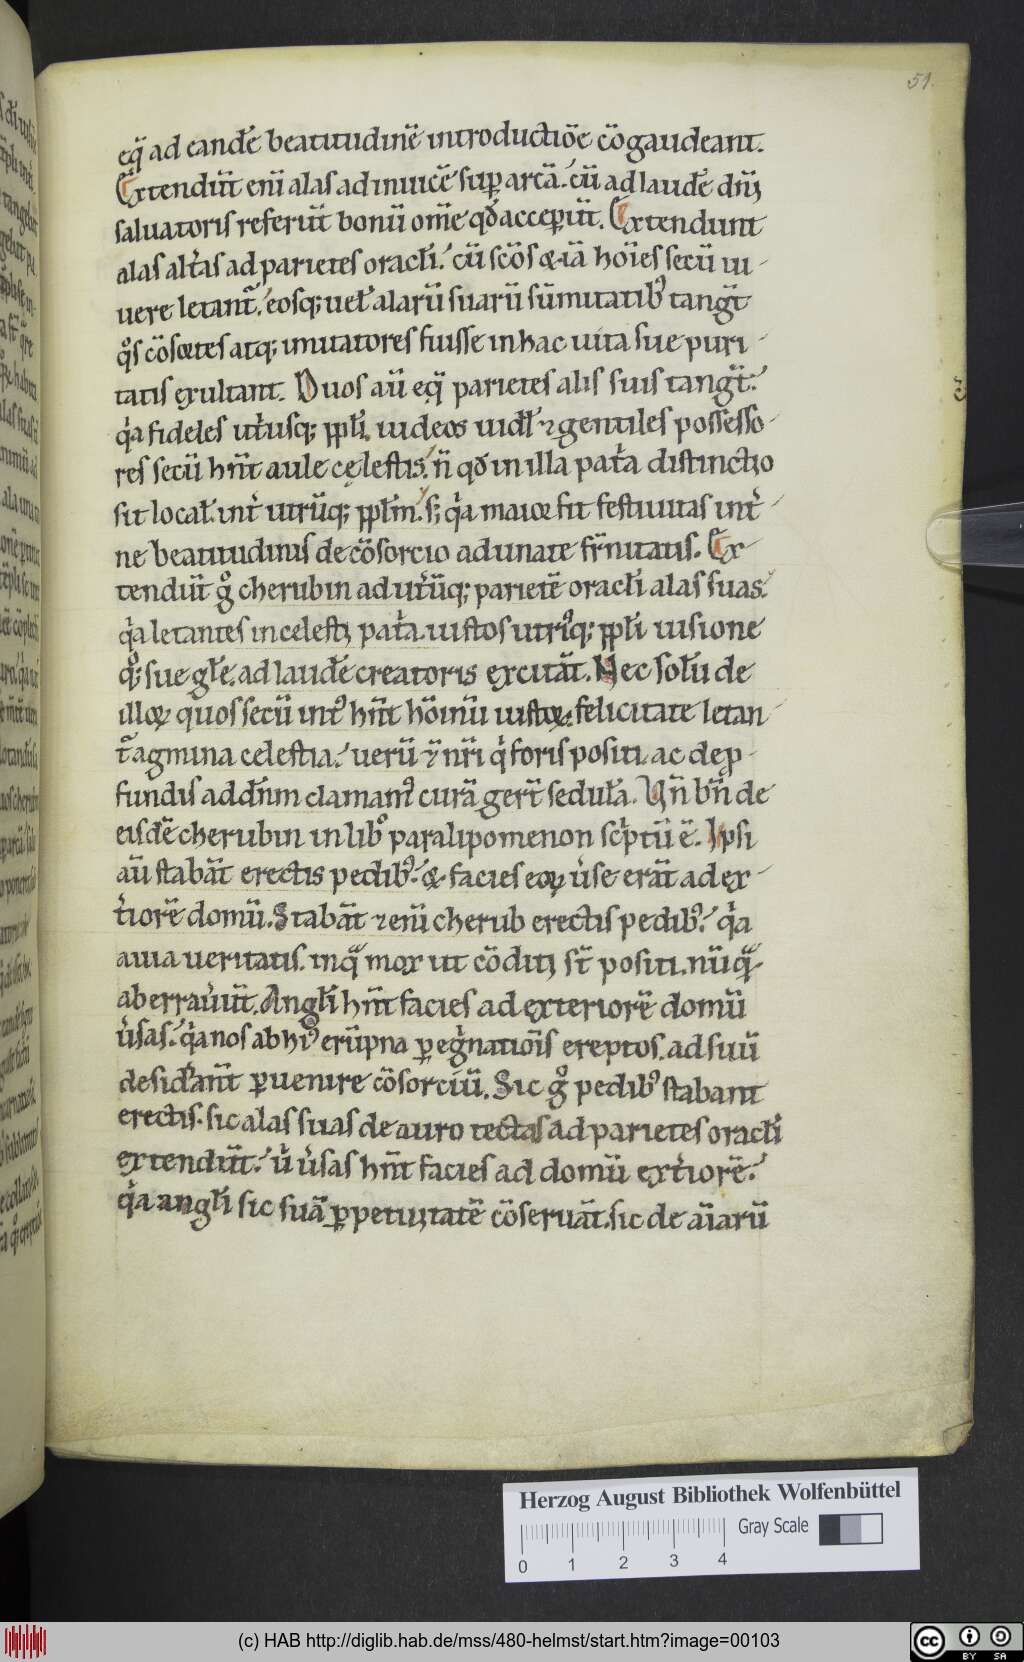 51.
eq̄ ad eandē beatitudinē introductiōe cōgaudeant.
Extendūt eni̅ alas ad inuicē sup̱ arcā. cū ad laudē dn̄i
saluatoris referūt bonū om̄e qđ accep̱ūt. Extendunt
alas alt̕as ad parietes oracłi. cū sc̄os & iā hōi̅es secū ui
uere letant̄. eosq; uel̕ alarū suarū sūmitatib᾽ tangt̄
qͦs cōsortes atq; imitatores fuisse in hac uita sue puri
tatis exultant. Duos aū eq̄ parietes alis suis tangt̄.
qͥa fideles ut̕usq; ppłi. iudeos uidł ⁊ gentiles possesso
res secū hn̄t aule cęlestis. n̄ qđ in illa pat̕a distinctio
sit locał. int̕ utrūq; ppłm. s; qͥa maior fit festiuitas int̕
ne beatitudinis de cōsorcio adunate fr̄nitatis. Ex
tendūt gͦ cherubin ad ut̕ūq; parietē oracłi alas suas.
qͥa letantes in celesti pat̕a iustos utri᾽q; ppłi uisione
q;ͦ sue głe. ad laudē creatoris excitāt. Nec solū de
illoꝝ quos secū int᾽ hn̄t hōinū iustoꝝ felicitate letan
t̄ agmina celestia. uerū ⁊ nr̄i qͥ foris positi ac de p̱
fundis ad dn̄m clamam᾽ curā gerūt sedułā. Un̄ bn̄ de
eisdē cherubin in libͦ paralipomenon sc̕ptū ē. Ipsi
aū stabāt erectis pedib᾽. & facies eoꝝ u̕se erāt ad ex
t̕iorē domū. Stabāt ⁊ eni̅ cherub erectis pedib᾽. qͥa
a uia ueritatis. in qͣ mox ut cōditi st̄ positi. nūqͣ
aberrau̕ūt. Angłi hn̄t facies ad exteriorē domū
u̕sas. qͥa nos ab hi᾽ erūpna p̱egͥnatiōis ereptos. ad suū
desid̕ant̄ p̱uenire cōsorciū. Sic gͦ pedib᾽ stabant
erectis. sic alas suas de auro tectas ad parietes oracłi
extendūt. u̕ u̕sas hn̄t facies ad domū ext̕iorē.
qͥa angłi sic suā p̱petuitatē cōseruāt. sic de aīarū
Herzog August Bibliothek Wolfenbüttel
Gray Scale
0 1 2 3 4
(c) HAB http://diglib.hab.de/mss/480-helmst/start.htm?image=00103
cc BY SA